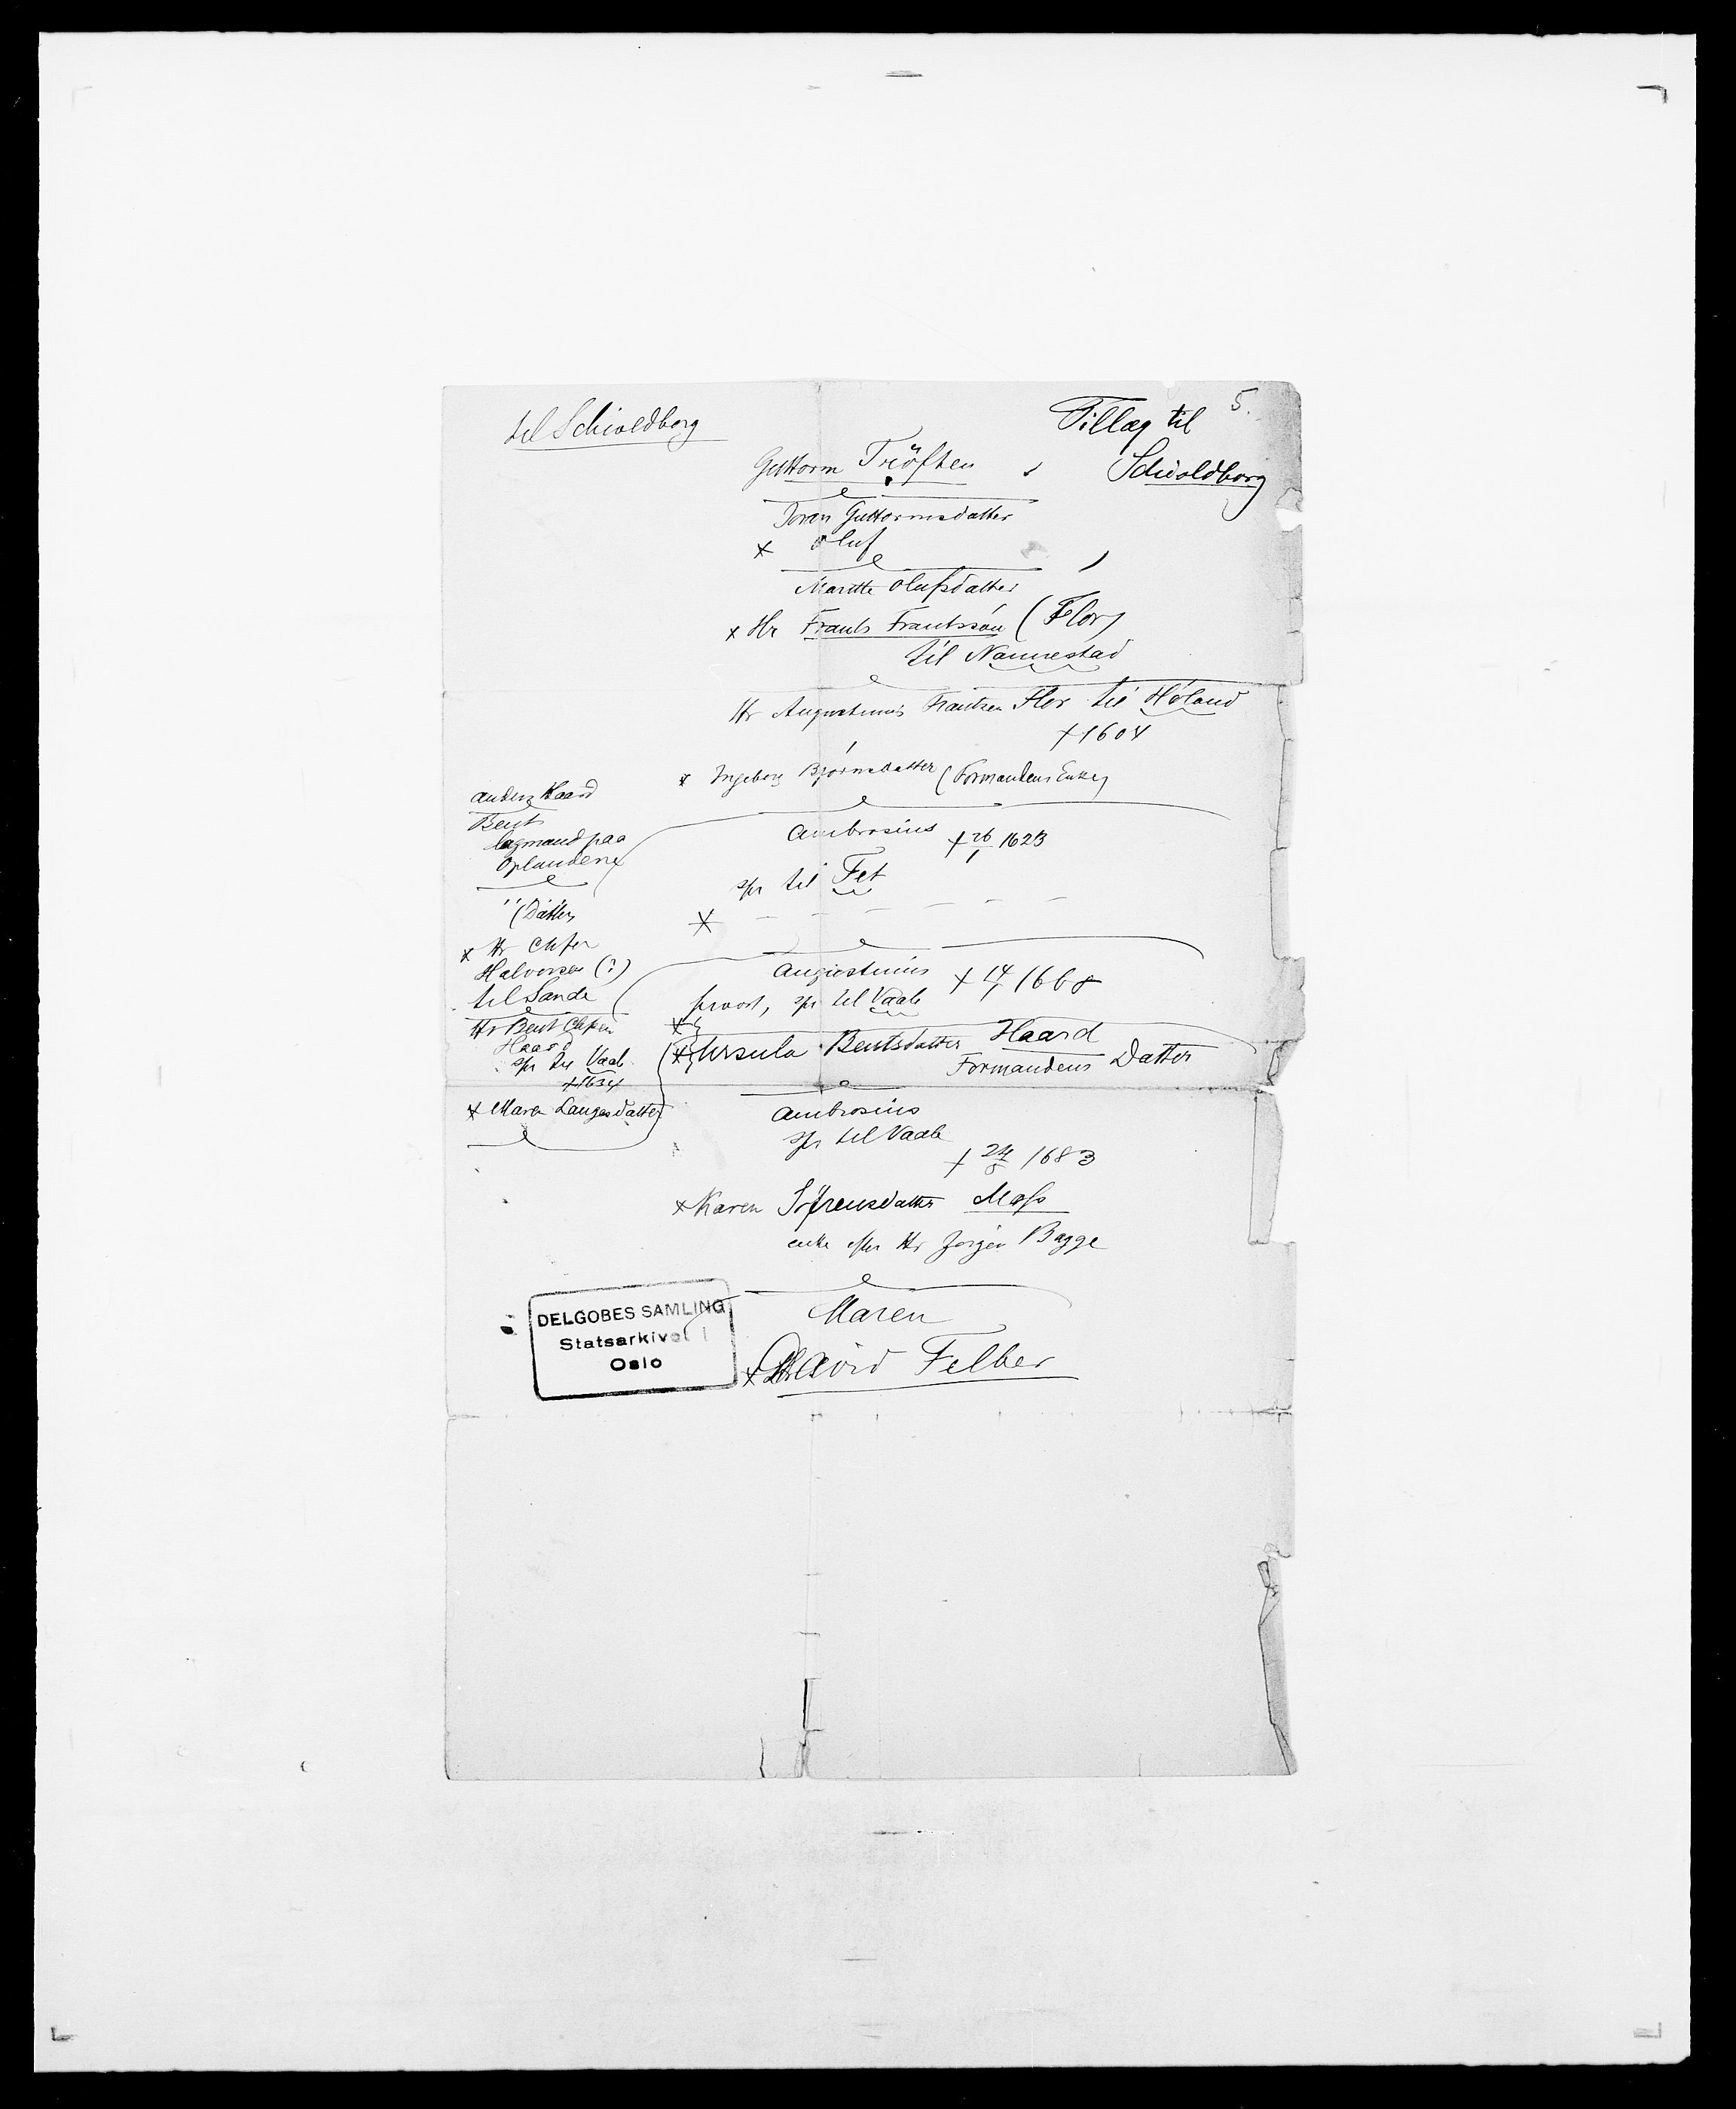 5.
til Schioldborg
Tillæg til
Schioldborg
Guttorm Tröften
Joran Guttormsdatter
* Oluf
Maritte Olufsdatter
* Hr Frants Frantssøn (Flor)
til Nannestad
Hr Augustinus Frantzen Flor til Høland
† 1604
* Ingeborg Bjørnsdatter (Formandens Enke)
Ambrosius † 26/1 1623
spr til Fet
*
Augustinus † 14/1 1668
provst, spr til Vaale
*
* Ursula Bentsdatter Haard
Formandens Datter
Ambrosius
spr til Vaale
† 24/5 1683
* Karen Sørensdatter Moss
enke efter Hr Jørgen Bagge
Maren
* David Felber
Anders Haard
Bent
lagmand paa
Oplandene
" (Datter)
* Hr
Halvorsen (?)
til Sande
Hr Bent
Haard
spr til Vaale
† 1634
* Maren Laugesdatter
DELGOBES SAMLING
Statsarkivet i
Oslo